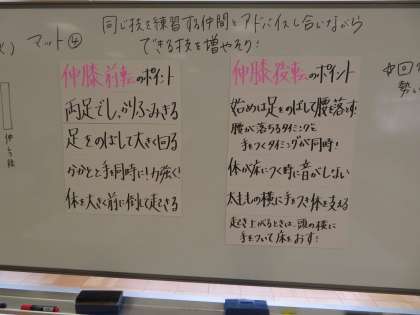 マット④
同じ技を練習する仲間とアドバイスし合いながら
できる技を増やそう!
伸膝前転のポイント
両足でしっかりふみきる
足をのばして大きく回る
かかとと手を同時に!力強く!
体を大きく前に倒して起きる
伸膝後転のポイント
始めは足をのばして腰を落とす!
腰が落ちるタイミングと
手をつくタイミングが同時!
体が床につく時に音がしない
太ももの横に手をつき体を支える
起き上がるときは、頭の横に
手をついて床をおす!